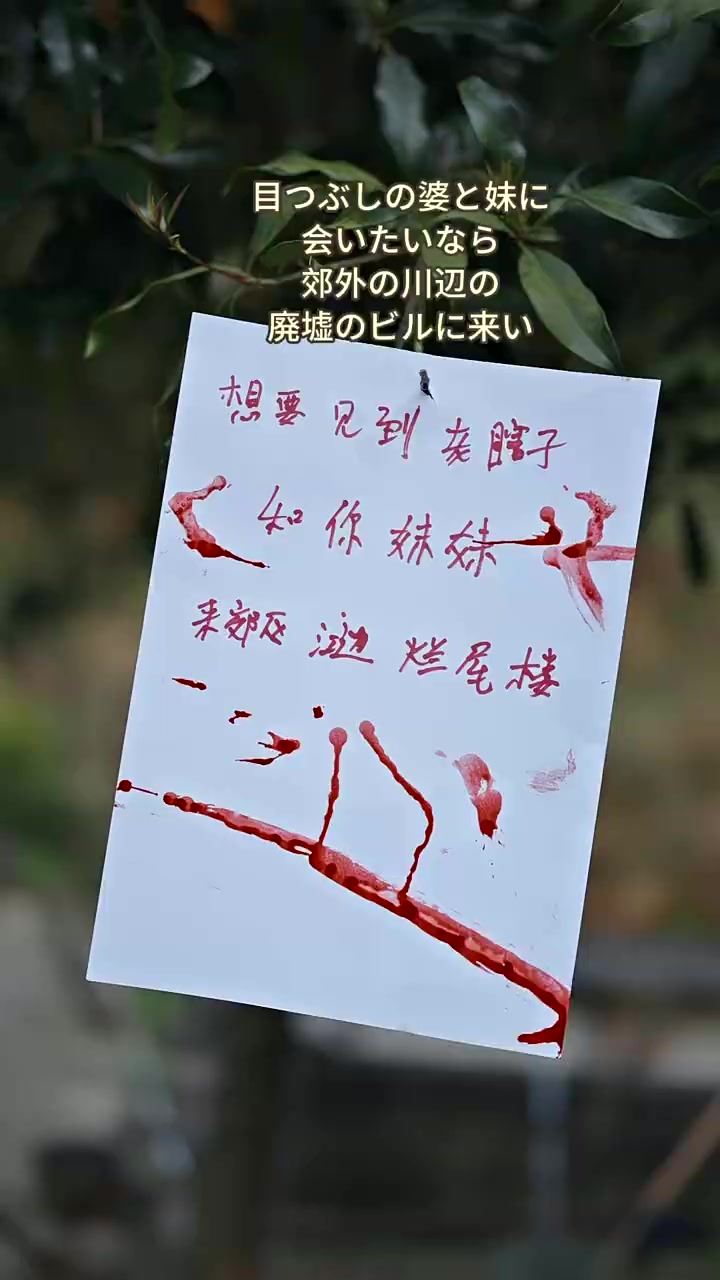 目つぶしの婆と妹に
会いたいなら
郊外の川辺の
廃墟のビルに来い
想要见到老瞎子
和你妹妹
来郊区江边烂尾楼